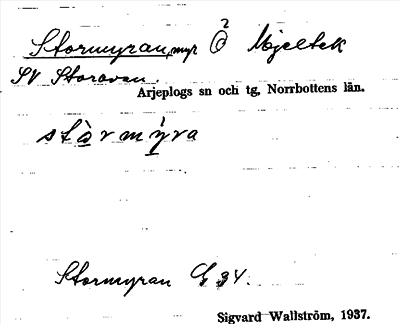 Stormyran, myr Ö Mjeltek
SV Storavan.
Arjeplogs sn och tg, Norrbottens län.
stårmy̱ra
Stormyran G 34.
Sigvard Wallström, 1937.